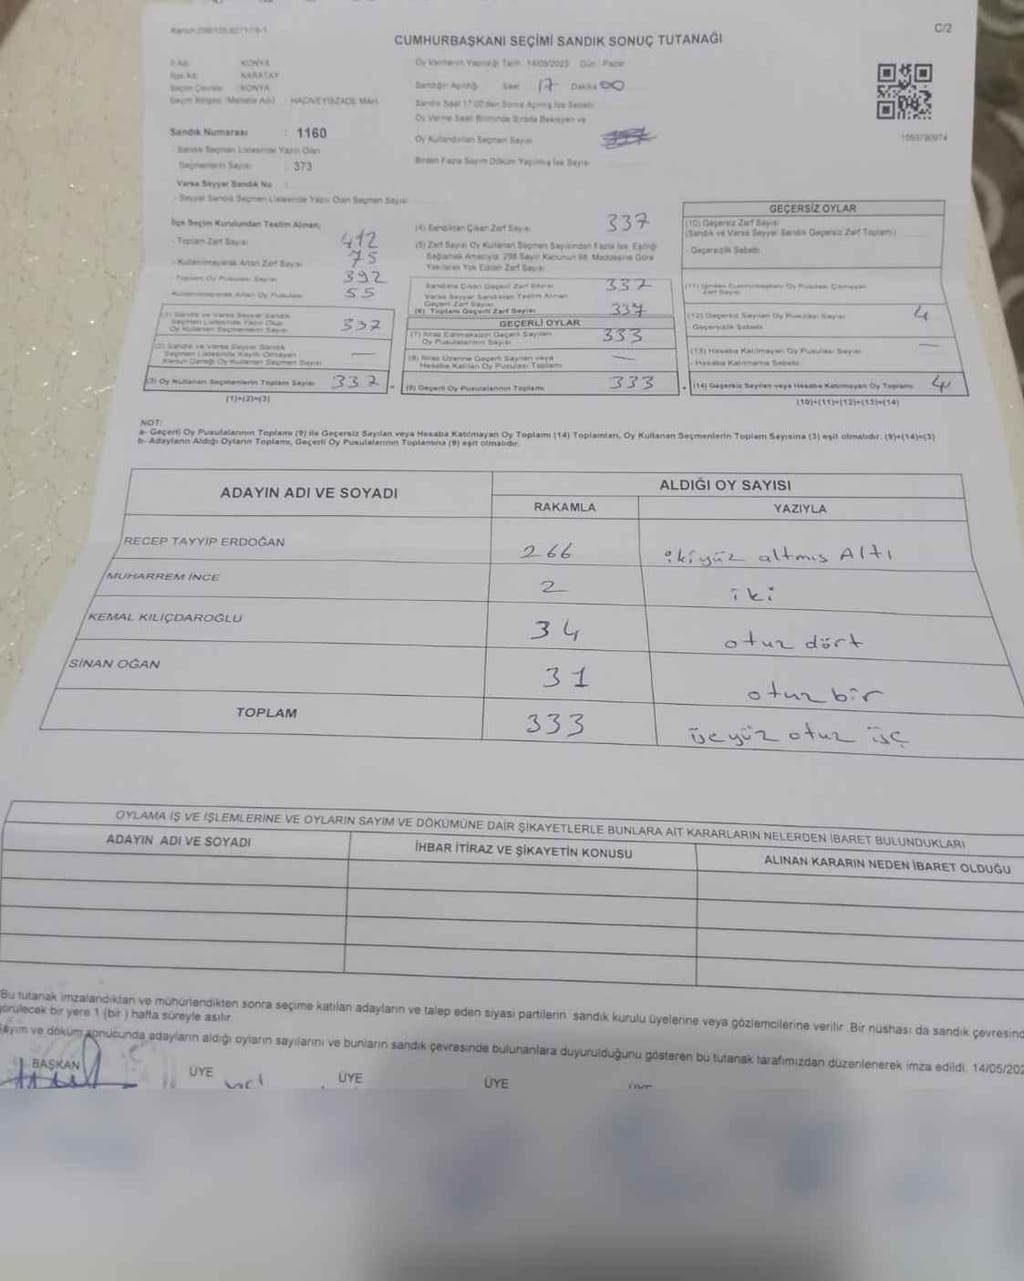 C/2
CUMHURBAŞKANI SEÇİMİ SANDIK SONUÇ TUTANAĞI
İl Adı : KONYA
İlçe Adı : KARATAY
Seçim Çevresi : KONYA
Seçim Bölgesi (Mahalle Adı) : HACIVEYİSZADE MAH.
Sandık Numarası : 1160
Sandık Seçmen Listesinde Yazılı Olan
Seçmenlerin Sayısı : 373
Varsa Seyyar Sandık No :
Seyyar Sandık Seçmen Listesinde Yazılı Olan Seçmen Sayısı
Oy Vermenin Yapıldığı Tarih 14/05/2023 Gün Pazar
Sandığın Açıldığı Saat 17 Dakika 00
Sandık Saat 17:00'den Sonra Açılmış İse Sebebi
Oy Verme Saati Bitiminde Sırada Bekleyen ve
Oy Kullandırılan Seçmen Sayısı
Birden Fazla Sayım Döküm Yapılmış İse Sayısı
İlçe Seçim Kurulundan Teslim Alınan;
- Toplam Zarf Sayısı 412
- Kullanılmayarak Artan Zarf Sayısı 75
- Toplam Oy Pusulası Sayısı 392
- Kullanılmayarak Artan Oy Pusulası 55
(1) Sandık ve Varsa Seyyar Sandık
Seçmen Listesinde Yazılı Olup
Oy Kullanan Seçmenlerin Sayısı 337
(2) Sandık ve Varsa Seyyar Sandık
Seçmen Listesinde Kayıtlı Olmayan
Kanun Gereği Oy Kullanan Seçmen Sayısı —
(3) Oy Kullanan Seçmenlerin Toplam Sayısı 337
(1)+(2)=(3)
(4) Sandıktan Çıkan Zarf Sayısı 337
(5) Zarf Sayısı Oy Kullanan Seçmen Sayısından Fazla İse, Eşitliği
Sağlamak Amacıyla, 298 Sayılı Kanunun 98. Maddesine Göre
Yakılarak Yok Edilen Zarf Sayısı
Sandıkta Çıkan Geçerli Zarf Sayısı 337
Varsa Seyyar Sandıktan Teslim Alınan
Geçerli Zarf Sayısı
(6) Toplam Geçerli Zarf Sayısı 337
GEÇERLİ OYLAR
(7) İtiraz Edilmeksizin Geçerli Sayılan
Oy Pusulalarının Sayısı 333
(8) İtiraz Üzerine Geçerli Sayılan veya
Hesaba Katılan Oy Pusulası Toplamı —
(9) Geçerli Oy Pusulalarının Toplamı 333
GEÇERSİZ OYLAR
(10) Geçersiz Zarf Sayısı
(Sandık ve Varsa Seyyar Sandık Geçersiz Zarf Toplamı)
- Geçersizlik Sebebi
(11) İçinden Cumhurbaşkanı Oy Pusulası Çıkmayan
Zarf Sayısı
(12) Geçersiz Sayılan Oy Pusulası Sayısı 4
- Geçersizlik Sebebi
(13) Hesaba Katılmayan Oy Pusulası Sayısı —
- Hesaba Katılmama Sebebi
(14) Geçersiz Sayılan veya Hesaba Katılmayan Oy Toplamı 4
(10)+(11)+(12)+(13)=(14)
NOT:
a- Geçerli Oy Pusulalarının Toplamı (9) ile Geçersiz Sayılan veya Hesaba Katılmayan Oy Toplamı (14) Toplamları, Oy Kullanan Seçmenlerin Toplam Sayısına (3) eşit olmalıdır. (9)+(14)=(3)
b- Adayların Aldığı Oyların Toplamı, Geçerli Oy Pusulalarının Toplamına (9) eşit olmalıdır.
ADAYIN ADI VE SOYADI ALDIĞI OY SAYISI
RAKAMLA YAZIYLA
RECEP TAYYİP ERDOĞAN 266 ikiyüz altmış Altı
MUHARREM İNCE 2 iki
KEMAL KILIÇDAROĞLU 34 otuz dört
SİNAN OĞAN 31 otuz bir
TOPLAM 333 üçyüz otuz üç
OYLAMA İŞ VE İŞLEMLERİNE VE OYLARIN SAYIM VE DÖKÜMÜNE DAİR ŞİKAYETLERLE BUNLARA AİT KARARLARIN NELERDEN İBARET BULUNDUKLARI
ADAYIN ADI VE SOYADI İHBAR İTİRAZ VE ŞİKAYETİN KONUSU ALINAN KARARIN NEDEN İBARET OLDUĞU
Bu tutanak imzalandıktan ve mühürlendikten sonra seçime katılan adayların ve talep eden siyasi partilerin sandık kurulu üyelerine veya gözlemcilerine verilir. Bir nüshası da sandık çevresind
görülecek bir yere 1 (bir) hafta süreyle asılır.
Sayım ve döküm sonucunda adayların aldığı oyların sayılarını ve bunların sandık çevresinde bulunanlara duyurulduğunu gösteren bu tutanak tarafımızdan düzenlenerek imza edildi. 14/05/202
BAŞKAN ÜYE ÜYE ÜYE